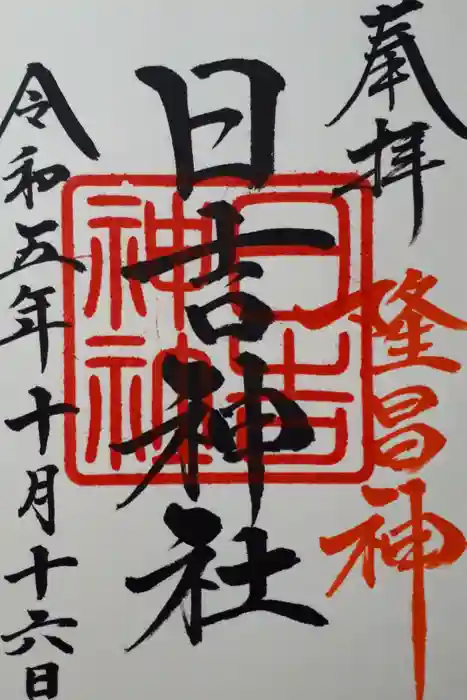 奉拝
隆昌神
日吉神社
令和五年十月十六日